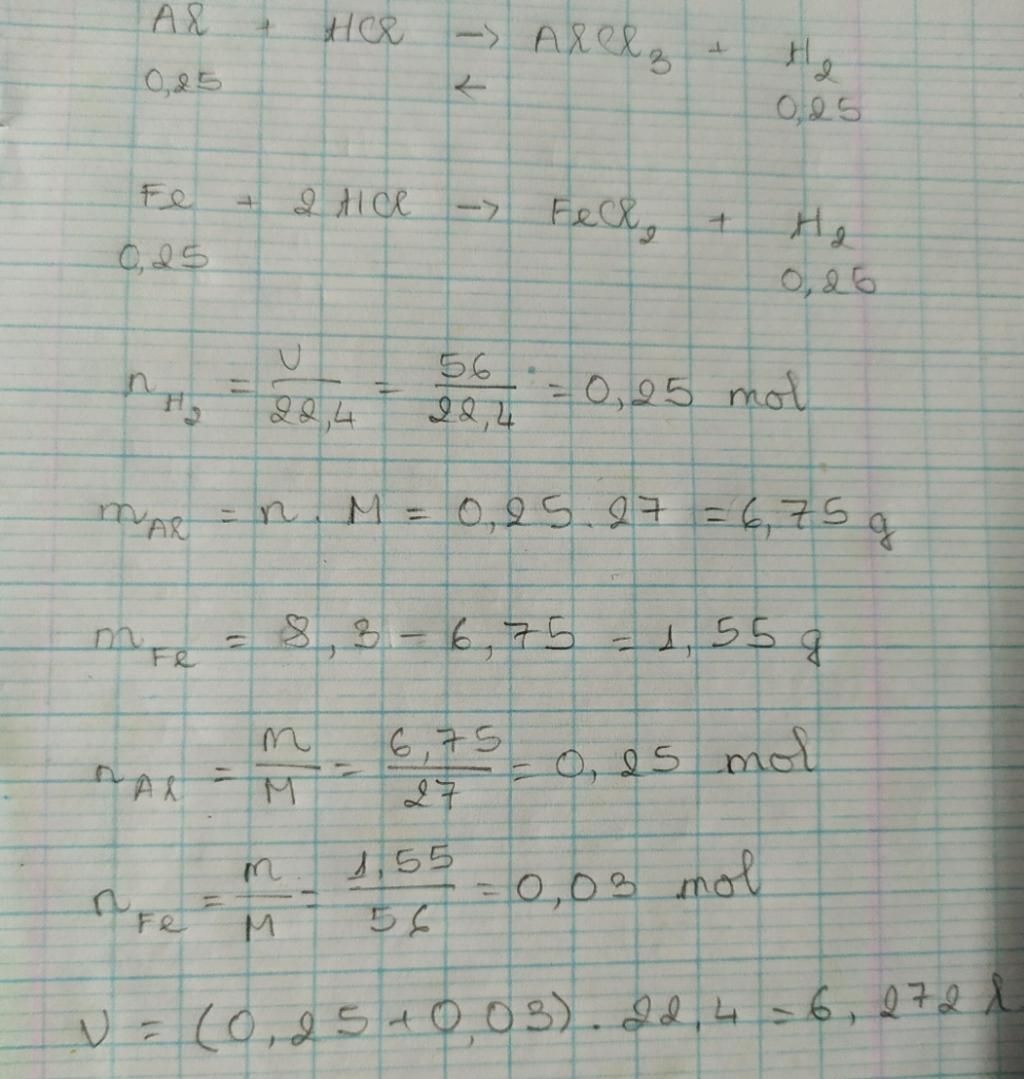 Al + HCl → AlCl₃ + H₂
0,25 ← 0,25
Fe + 2 HCl → FeCl₂ + H₂
0,25 0,25
n H₂ = V/22,4 = 56/22,4 = 0,25 mol
m Al = n . M = 0,25 . 27 = 6,75 g
m Fe = 8,3 - 6,75 = 1,55 g
n Al = m/M = 6,75/27 = 0,25 mol
n Fe = m/M = 1,55/56 = 0,03 mol
V = (0,25 + 0,03) . 22,4 = 6,272 l